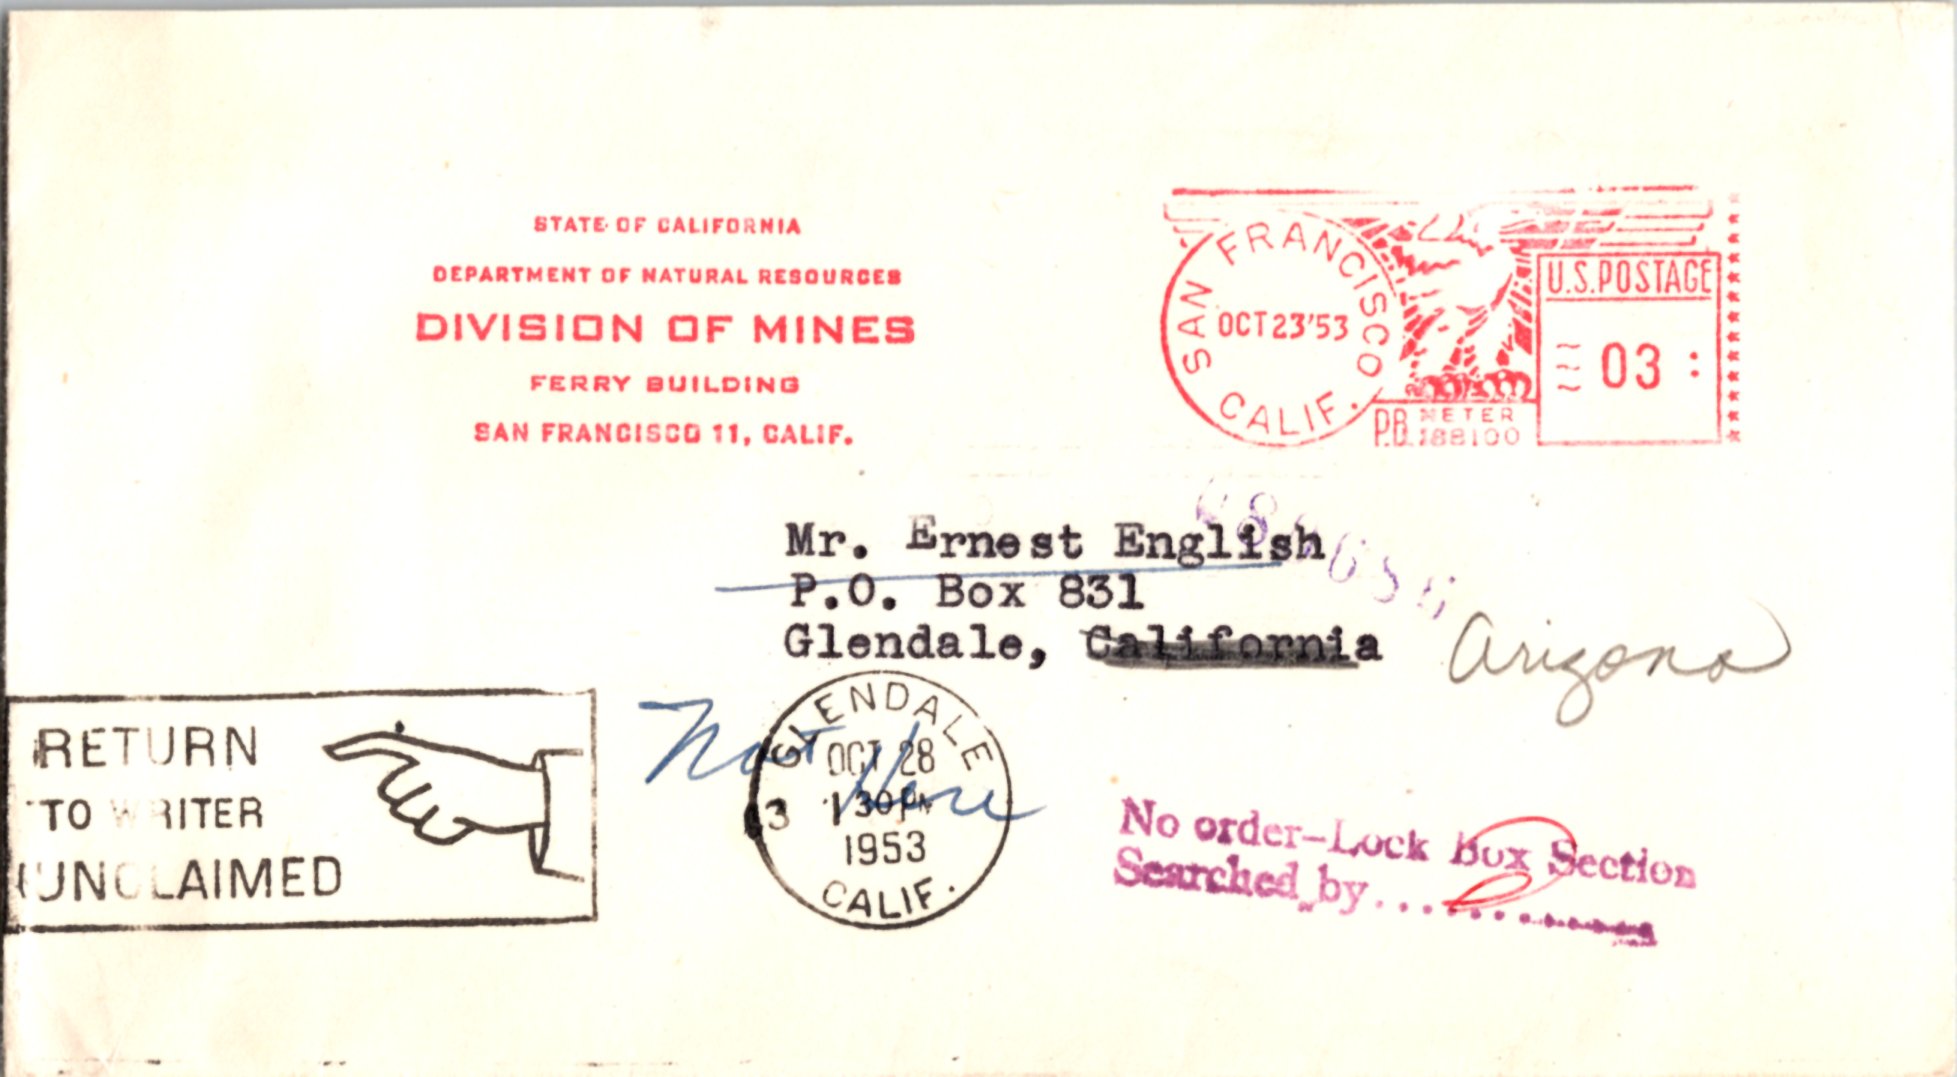 STATE OF CALIFORNIA
DEPARTMENT OF NATURAL RESOURCES
DIVISION OF MINES
FERRY BUILDING
SAN FRANCISCO 11, CALIF.
SAN FRANCISCO
OCT 23 '53
CALIF.
U.S. POSTAGE
03
P.B. METER
188100
Mr. Ernest English
P.O. Box 831
Glendale, California Arizona
RETURN
TO WRITER
UNCLAIMED
Not Here
GLENDALE
OCT 28
1 30 PM
1953
CALIF.
No order-Lock Box Section
Searched by..............